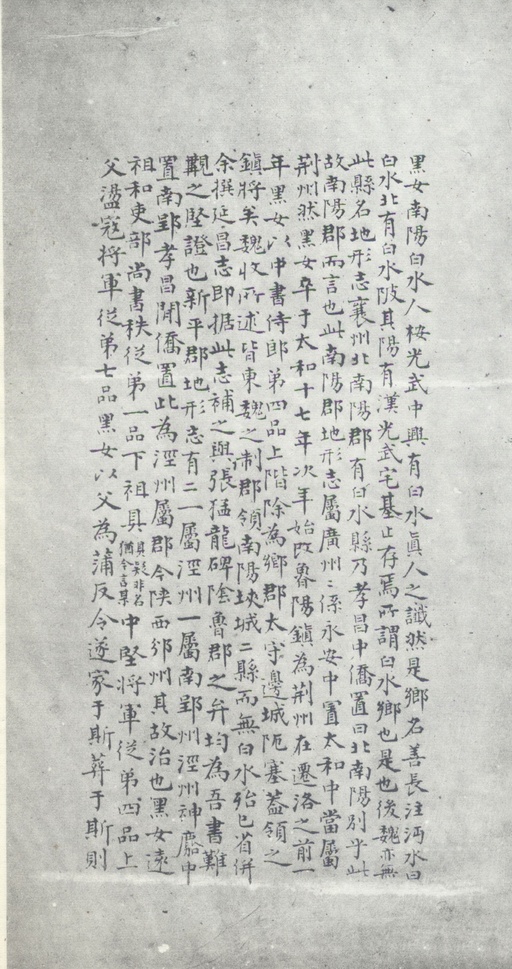 黑女南陽白水人桉光武中興有白水眞人之讖然是鄉名善長注沔水曰
白水北有白水陂其陽有漢光武宅基止存焉所謂白水鄉也是也後魏亦無
此縣名地形志襄州北南陽郡有白水縣乃孝昌中僑置曰北南陽别乎此
故南陽郡而言也此南陽郡地形志屬廣州〻係永安中置太和中當屬
荆州然黑女卒于太和十七年次年始改魯陽鎮為荆州在遷洛之前一
年黑女以中書侍郎第四品上階除為鄉郡太守邊城阨塞蓋領之
鎮將矣魏收所述皆東魏之制郡領南陽埉城二縣而無白水殆已省併
余撰延昌志即据此志補之與張猛龍碑陰魯郡之弁均為吾書難
覯之堅證也新平郡地形志有二一屬涇州一屬南郢州涇州神䴥中
置南郢孝昌閒僑置此為涇州屬郡今陝西邠州其故治也黑女遠
祖和吏部尚書秩從第一品下祖具具疑非名猶今言某中堅將軍從第四品上
父盪寇將軍從第七品黑女以父為蒲反令遂家于斯葬于斯則